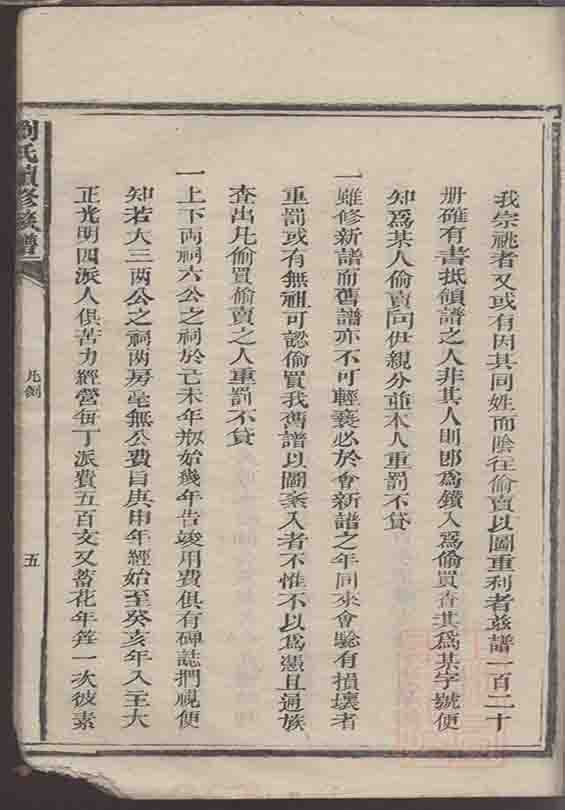 我宗祧者又或有因其同姓而陰往偷賣以圖重利者茲譜一百二十
册確有書抵領譜之人非其人則即為鑽入為偷買查其為某字號便
知為某人偷賣同伊親分並本人重罰不貸
一雖修新譜而舊譜亦不可輕棄必於會新譜之年同來會驗有損壞者
重罰或有無祖可認偷買我舊譜以圖紊入者不惟不以為憑且通族
查出凡偷買偷賣之人重罰不貸
一上下両祠六公之祠於己未年刱始幾年告竣用費俱有碑誌捫視便
知若大三两公之祠两房毫無公費自庚申年經始至癸亥年入主大
正光明四派人俱苦力經營每丁派費五百文又蓄花年筭一次彼素
劉氏續修族譜
凡例
五